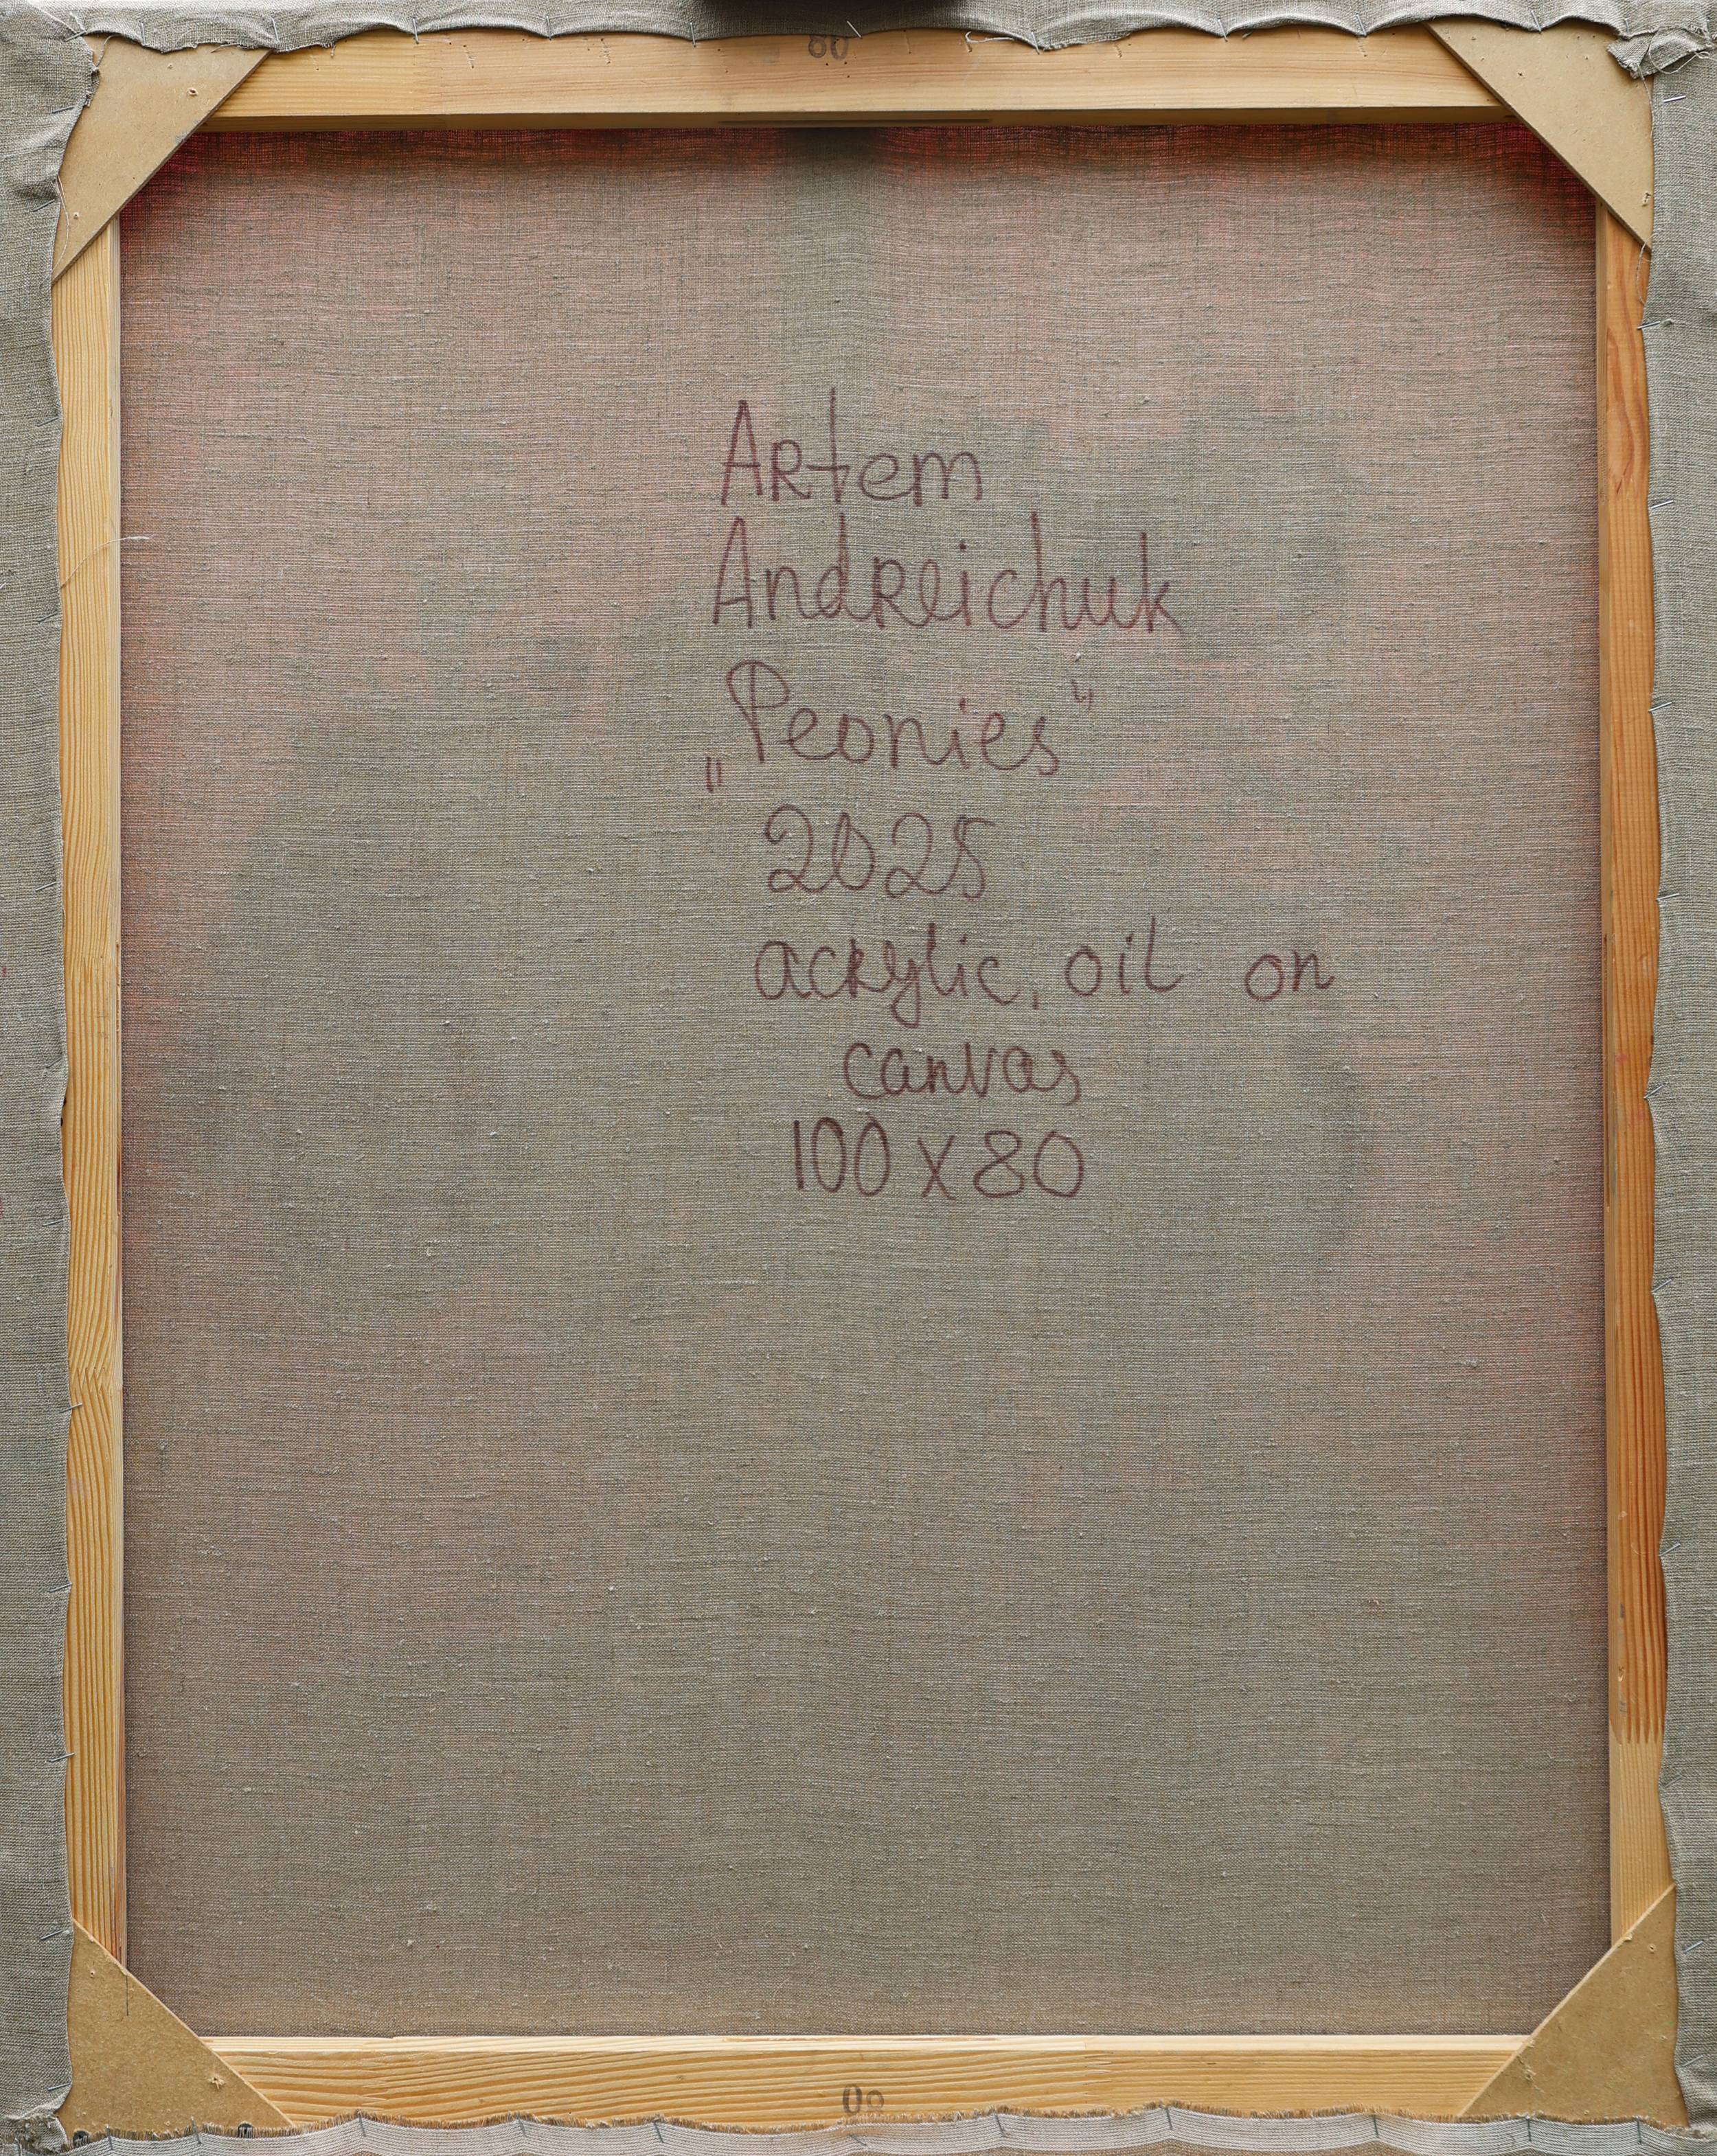 80
Artem
Andreichuk
„Peonies“
2025
acrylic, oil on
canvas
100 x 80